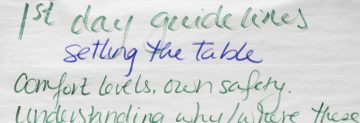 1st day guidelines
setting the table
Comfort levels, own safety.
Understanding why/where these